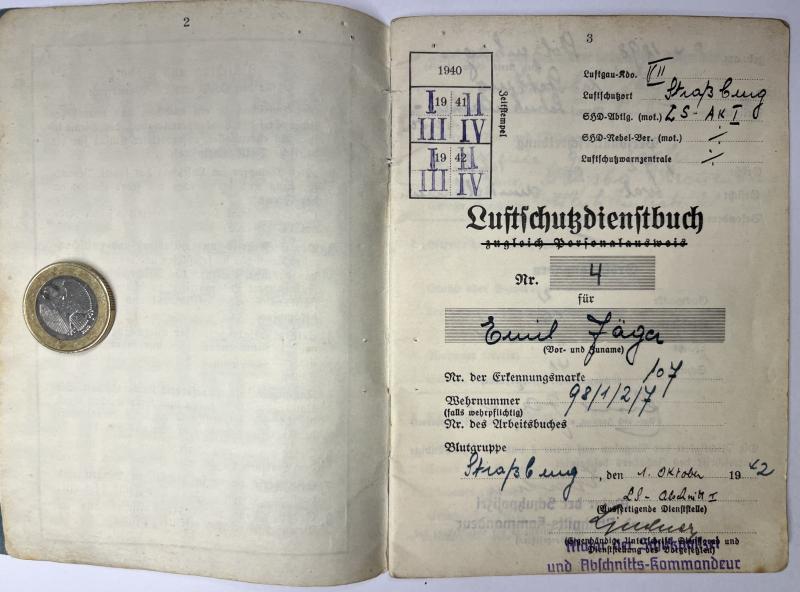 2
3
1940
I 19 41 II
III IV
I 19 42 II
III IV
Zeitstempel
Luftgau-Kdo. VII
Luftschutzort Straßburg
SHD-Abtlg. (mot.) LS-AK I
SHD-Nebel-Ber. (mot.) ·/·
Luftschutzwarnzentrale ·/·
Luftschutzdienstbuch
zugleich Personalausweis
Nr. 4
für
Emil Jäger
(Vor- und Zuname)
Nr. der Erkennungsmarke 107
Wehrnummer 98/1/2/7
(falls wehrpflichtig)
Nr. des Arbeitsbuches
Blutgruppe
Straßburg, den 1. Oktober 1942
LS-Abschnitt I
(Ausfertigende Dienststelle)
(Eigenhändige Unterschrift, Dienstgrad und
Dienststellung des Vorgesetzten)
Major der Schutzpolizei
und Abschnitts-Kommandeur